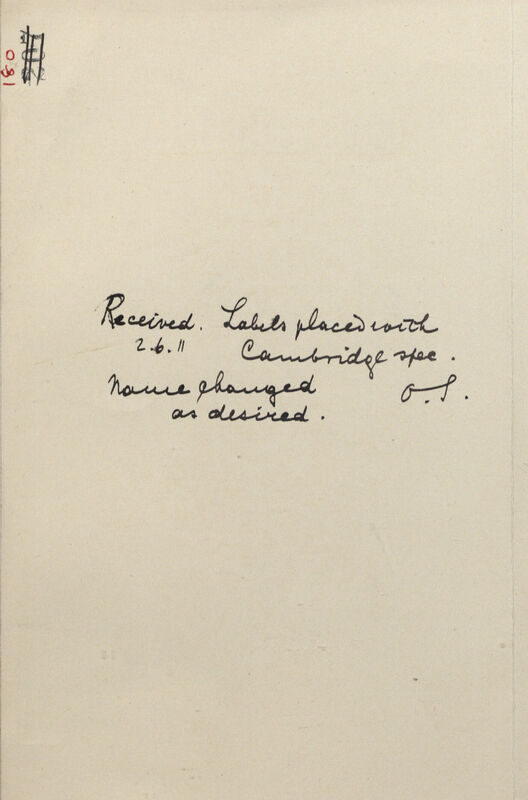 180
Received. Labels placed with
2.6.11 Cambridge spec.
Name changed O.S.
as desired.